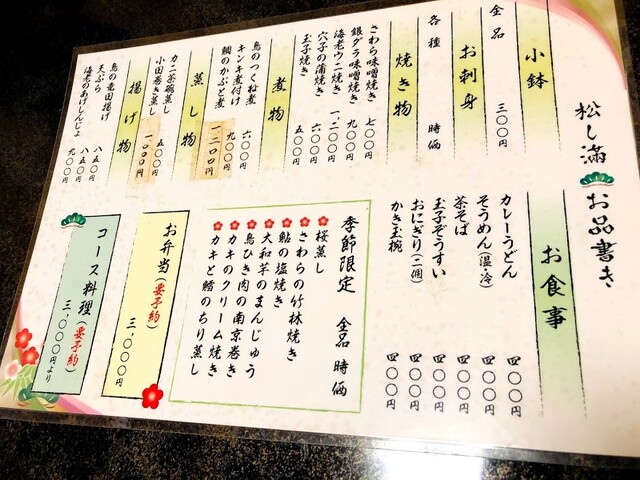 松し満 お品書き
小鉢
全品 三〇〇円
お刺身
各種 時価
焼き物
さわら味噌焼き 七〇〇円
銀ダラ味噌焼き 九〇〇円
海老ウニ焼き 一、二〇〇円
穴子の蒲焼き 六〇〇円
玉子焼き 五〇〇円
煮物
鳥のつくね煮 六〇〇円
キンキ煮付け 九〇〇円
鯛のかぶと煮 一、二〇〇円
蒸し物
カニ茶碗蒸し 五〇〇円
小田巻き蒸し 一、〇〇〇円
揚げ物
鳥の竜田揚げ 八五〇円
天ぷら 八五〇円
海老のあげしんじょ 九〇〇円
お食事
カレーうどん 四〇〇円
そうめん(温・冷) 四〇〇円
茶そば 四〇〇円
玉子ぞうすい 四〇〇円
おにぎり(二個) 四〇〇円
かき玉椀 四〇〇円
季節限定 全品 時価
桜蒸し
さわらの竹林焼き
鮎の塩焼き
大和芋のまんじゅう
鳥ひき肉の南京巻き
カキのクリーム焼き
カキと鱈のちり蒸し
お弁当(要予約)
三、〇〇〇円
コース料理(要予約)
三、〇〇〇円より